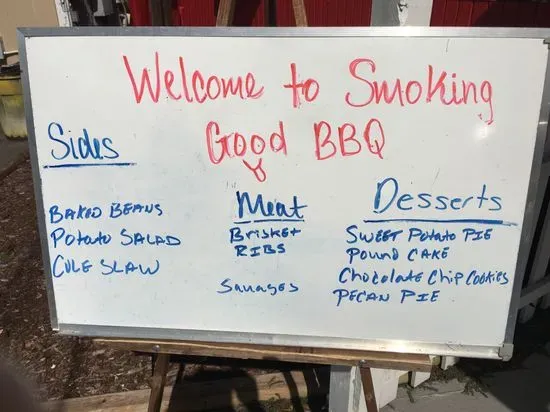 Welcome to Smoking
Good BBQ
Sides
BAKED BEANS
POTATO SALAD
COLE SLAW
Meat
BRISKET
RIBS
Sausages
Desserts
SWEET POTATO PIE
POUND CAKE
Chocolate Chip Cookies
PECAN PIE